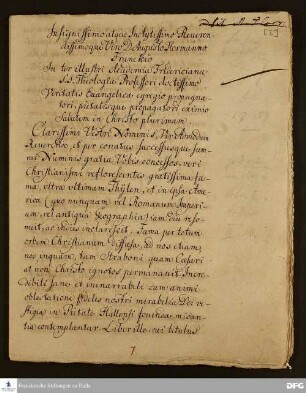 Insignissimo atque Inclytissimo Reveren-
dissimoque Viro D. Augusto Hermanno
Franckio
In ter illustri Academia Fridericiana
S.S. Theologiæ Professori doctissimo
Veritatis Evangelicæ egregio propugna-
tori, pietatisque propagatori eximio
Salutem in Christo plurimam.
Clarissimi Vestri Nominis, Vir Admodum
Reverende, et per conatus successusque sum-
mi Numinis gratia Vobis concessos, veri
Christianismi reflorescentis gratissima fa-
ma, ultra ultimam Thulen, et in ipsa Ame-
rica (quo nunquam vel Romanum Imperi-
um, vel antiqua Geographia) jam diu reso-
nuit, ac indies inclarescit. Fama per totum
orbem Christianum diffusa, ad nos etiam,
nos inquam, tam Straboni quam Cæsari
at non Christo ignotos permanavit. Incre-
dibili sane, et inenarrabili cum animi
oblectatione fideles nostri mirabilia Dei ve-
stigia, in Pietate Hallensi
contemplantur. Libar ille, cui titulus
1
Franckesche Stiftungen zu Halle